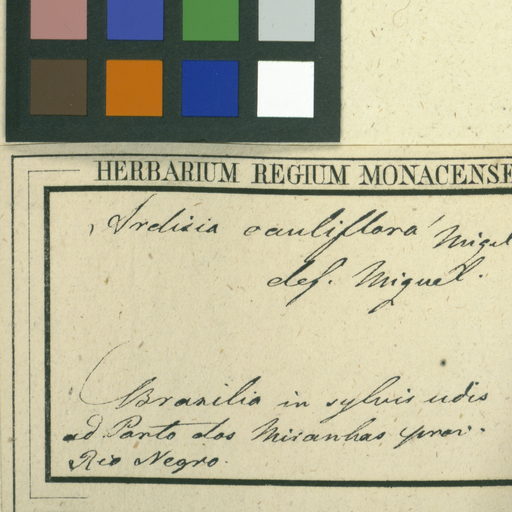 HERBARIUM REGIUM MONACENSE
Ardisia cauliflora Miquel
def. Miquel.
Brasilia in sylvis udis
ad Porto dos Miranhas prov.
Rio Negro.